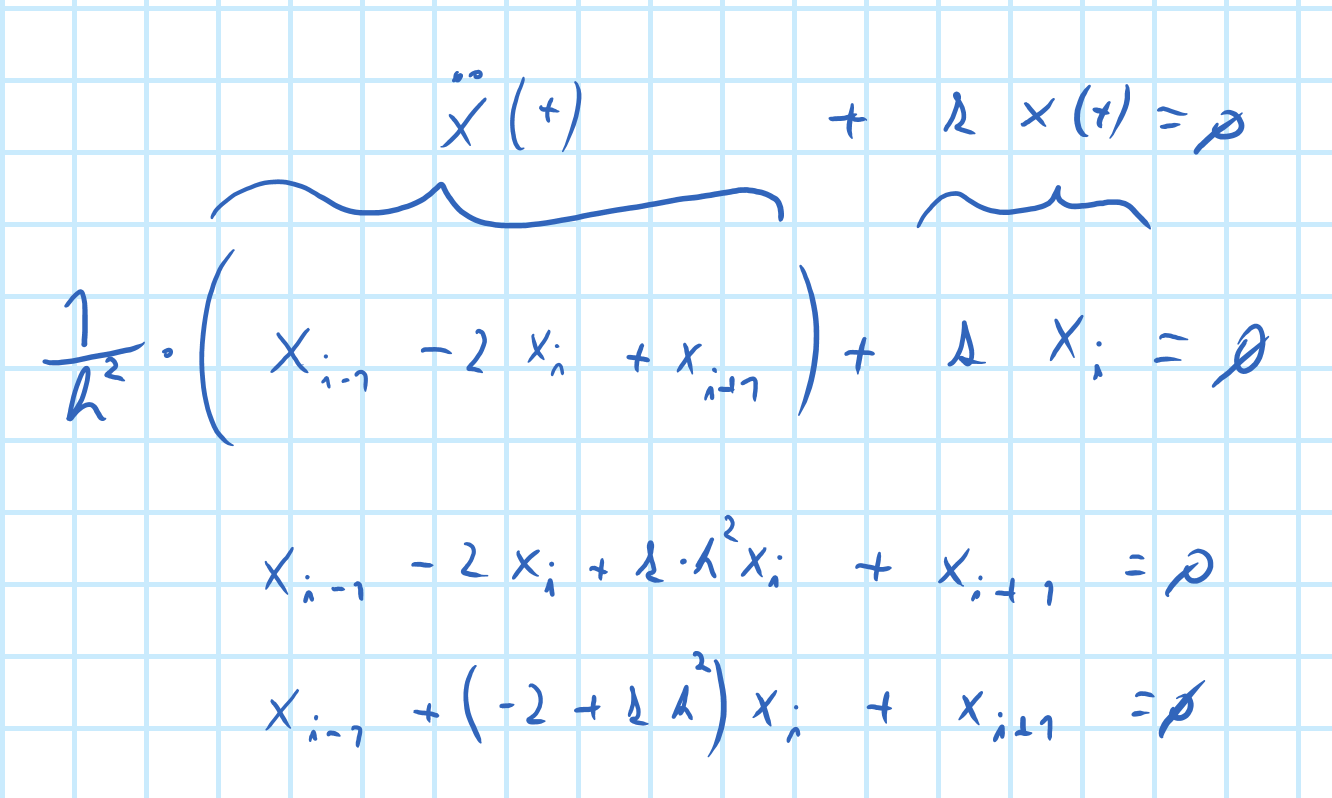 ẍ(t) + λ x(t) = 0
1/h² · (x_{i-1} - 2 x_i + x_{i+1}) + λ x_i = 0
x_{i-1} - 2 x_i + λ · h² x_i + x_{i+1} = 0
x_{i-1} + (-2 + λ h²) x_i + x_{i+1} = 0